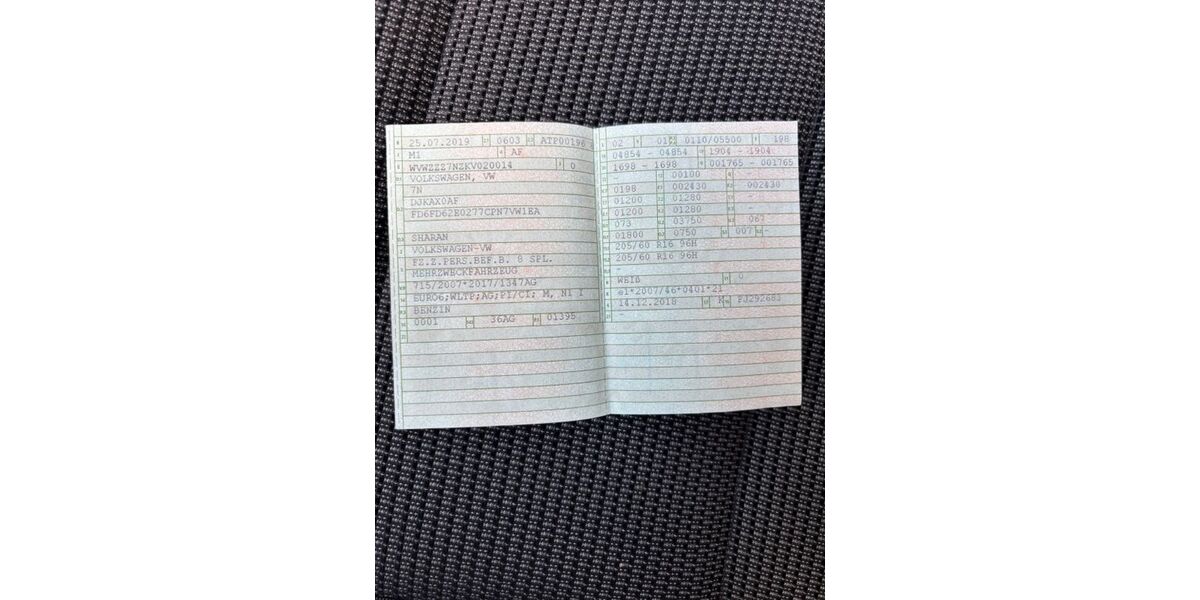 25.07.2019 0603 ATP00196
M1 AF
WVWZZZ7NZKV020014 0
VOLKSWAGEN, VW
7N
DJKAX0AF
FD6FD62E0277CPN7VW1EA
SHARAN
VOLKSWAGEN-VW
FZ.Z.PERS.BEF.B. 8 SPL.
MEHRZWECKFAHRZEUG
715/2007*2017/1347AG
EURO6;WLTP;AG;PI/CI; M, N1 I
BENZIN
0001 36AG 01395
02 01 0110/05500 198
04854 - 04854 1904 - 1904
1698 - 1698 001765 - 001765
- 00100 -
0198 002430 002430
01200 01280 -
01200 01280 -
073 03750 067
01800 0750 007 -
205/60 R16 96H
205/60 R16 96H
-
WEIß 0
e1*2007/46*0401*21
14.12.2018 K PJ292681
-